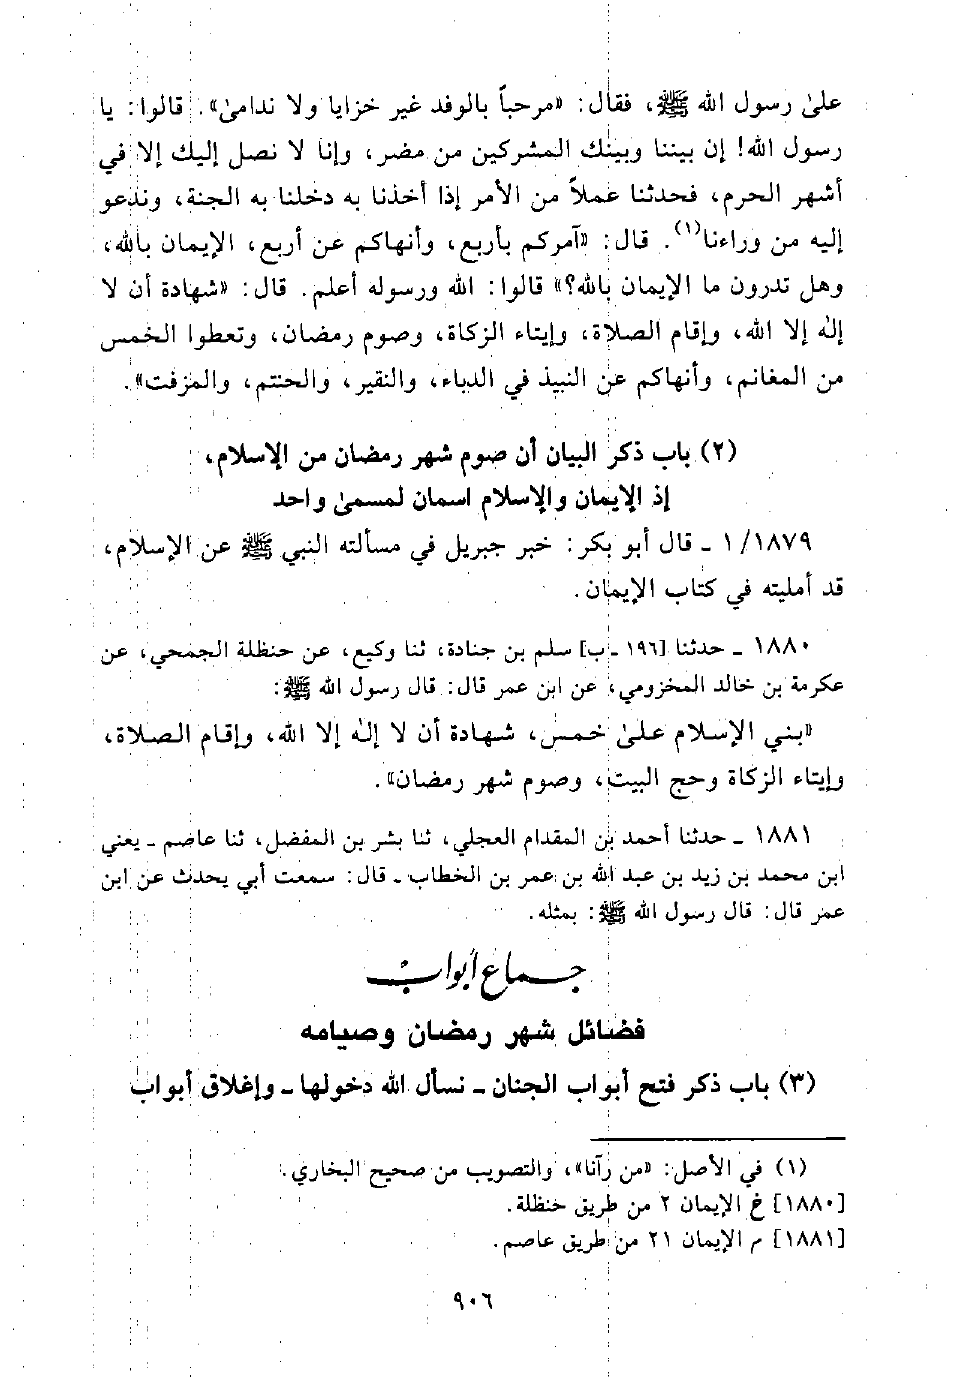 على رسول الله ﷺ، فقال: «مرحباً بالوفد غير خزايا ولا ندامى». قالوا: يا
رسول الله! إن بيننا وبينك المشركين من مضر، وإنا لا نصل إليك إلا في
أشهر الحرم، فحدثنا عملاً من الأمر إذا أخذنا به دخلنا به الجنة، وندعو
إليه من وراءنا(١). قال: «آمركم بأربع، وأنهاكم عن أربع، الإيمان بالله،
وهل تدرون ما الإيمان بالله؟» قالوا: الله ورسوله أعلم. قال: «شهادة أن لا
إله إلا الله، وإقام الصلاة، وإيتاء الزكاة، وصوم رمضان، وتعطوا الخمس
من المغانم، وأنهاكم عن النبيذ في الدباء، والنقير، والحنتم، والمزفت».
(٢) باب ذكر البيان أن صوم شهر رمضان من الإسلام،
إذ الإيمان والإسلام اسمان لمسمى واحد
١/١٨٧٩ ـ قال أبو بكر: خبر جبريل في مسألته النبي ﷺ عن الإسلام،
قد أمليته في كتاب الإيمان.
١٨٨٠ ـ حدثنا [١٩٦ ـ ب] سلم بن جنادة، ثنا وكيع، عن حنظلة الجمحي، عن
عكرمة بن خالد المخزومي، عن ابن عمر قال: قال رسول الله ﷺ:
«بني الإسلام على خمس، شهادة أن لا إله إلا الله، وإقام الصلاة،
وإيتاء الزكاة وحج البيت، وصوم شهر رمضان».
١٨٨١ ـ حدثنا أحمد بن المقدام العجلي، ثنا بشر بن المفضل، ثنا عاصم ـ يعني
ابن محمد بن زيد بن عبد الله بن عمر بن الخطاب ـ قال: سمعت أبي يحدث عن ابن
عمر قال: قال رسول الله ﷺ: بمثله.
جماع أبواب
فضائل شهر رمضان وصيامه
(٣) باب ذكر فتح أبواب الجنان ـ نسأل الله دخولها ـ وإغلاق أبواب
(١) في الأصل: «من رآنا»، والتصويب من صحيح البخاري.
[١٨٨٠] خ الإيمان ٢ من طريق حنظلة.
[١٨٨١] م الإيمان ٢١ من طريق عاصم.
٩٠٦